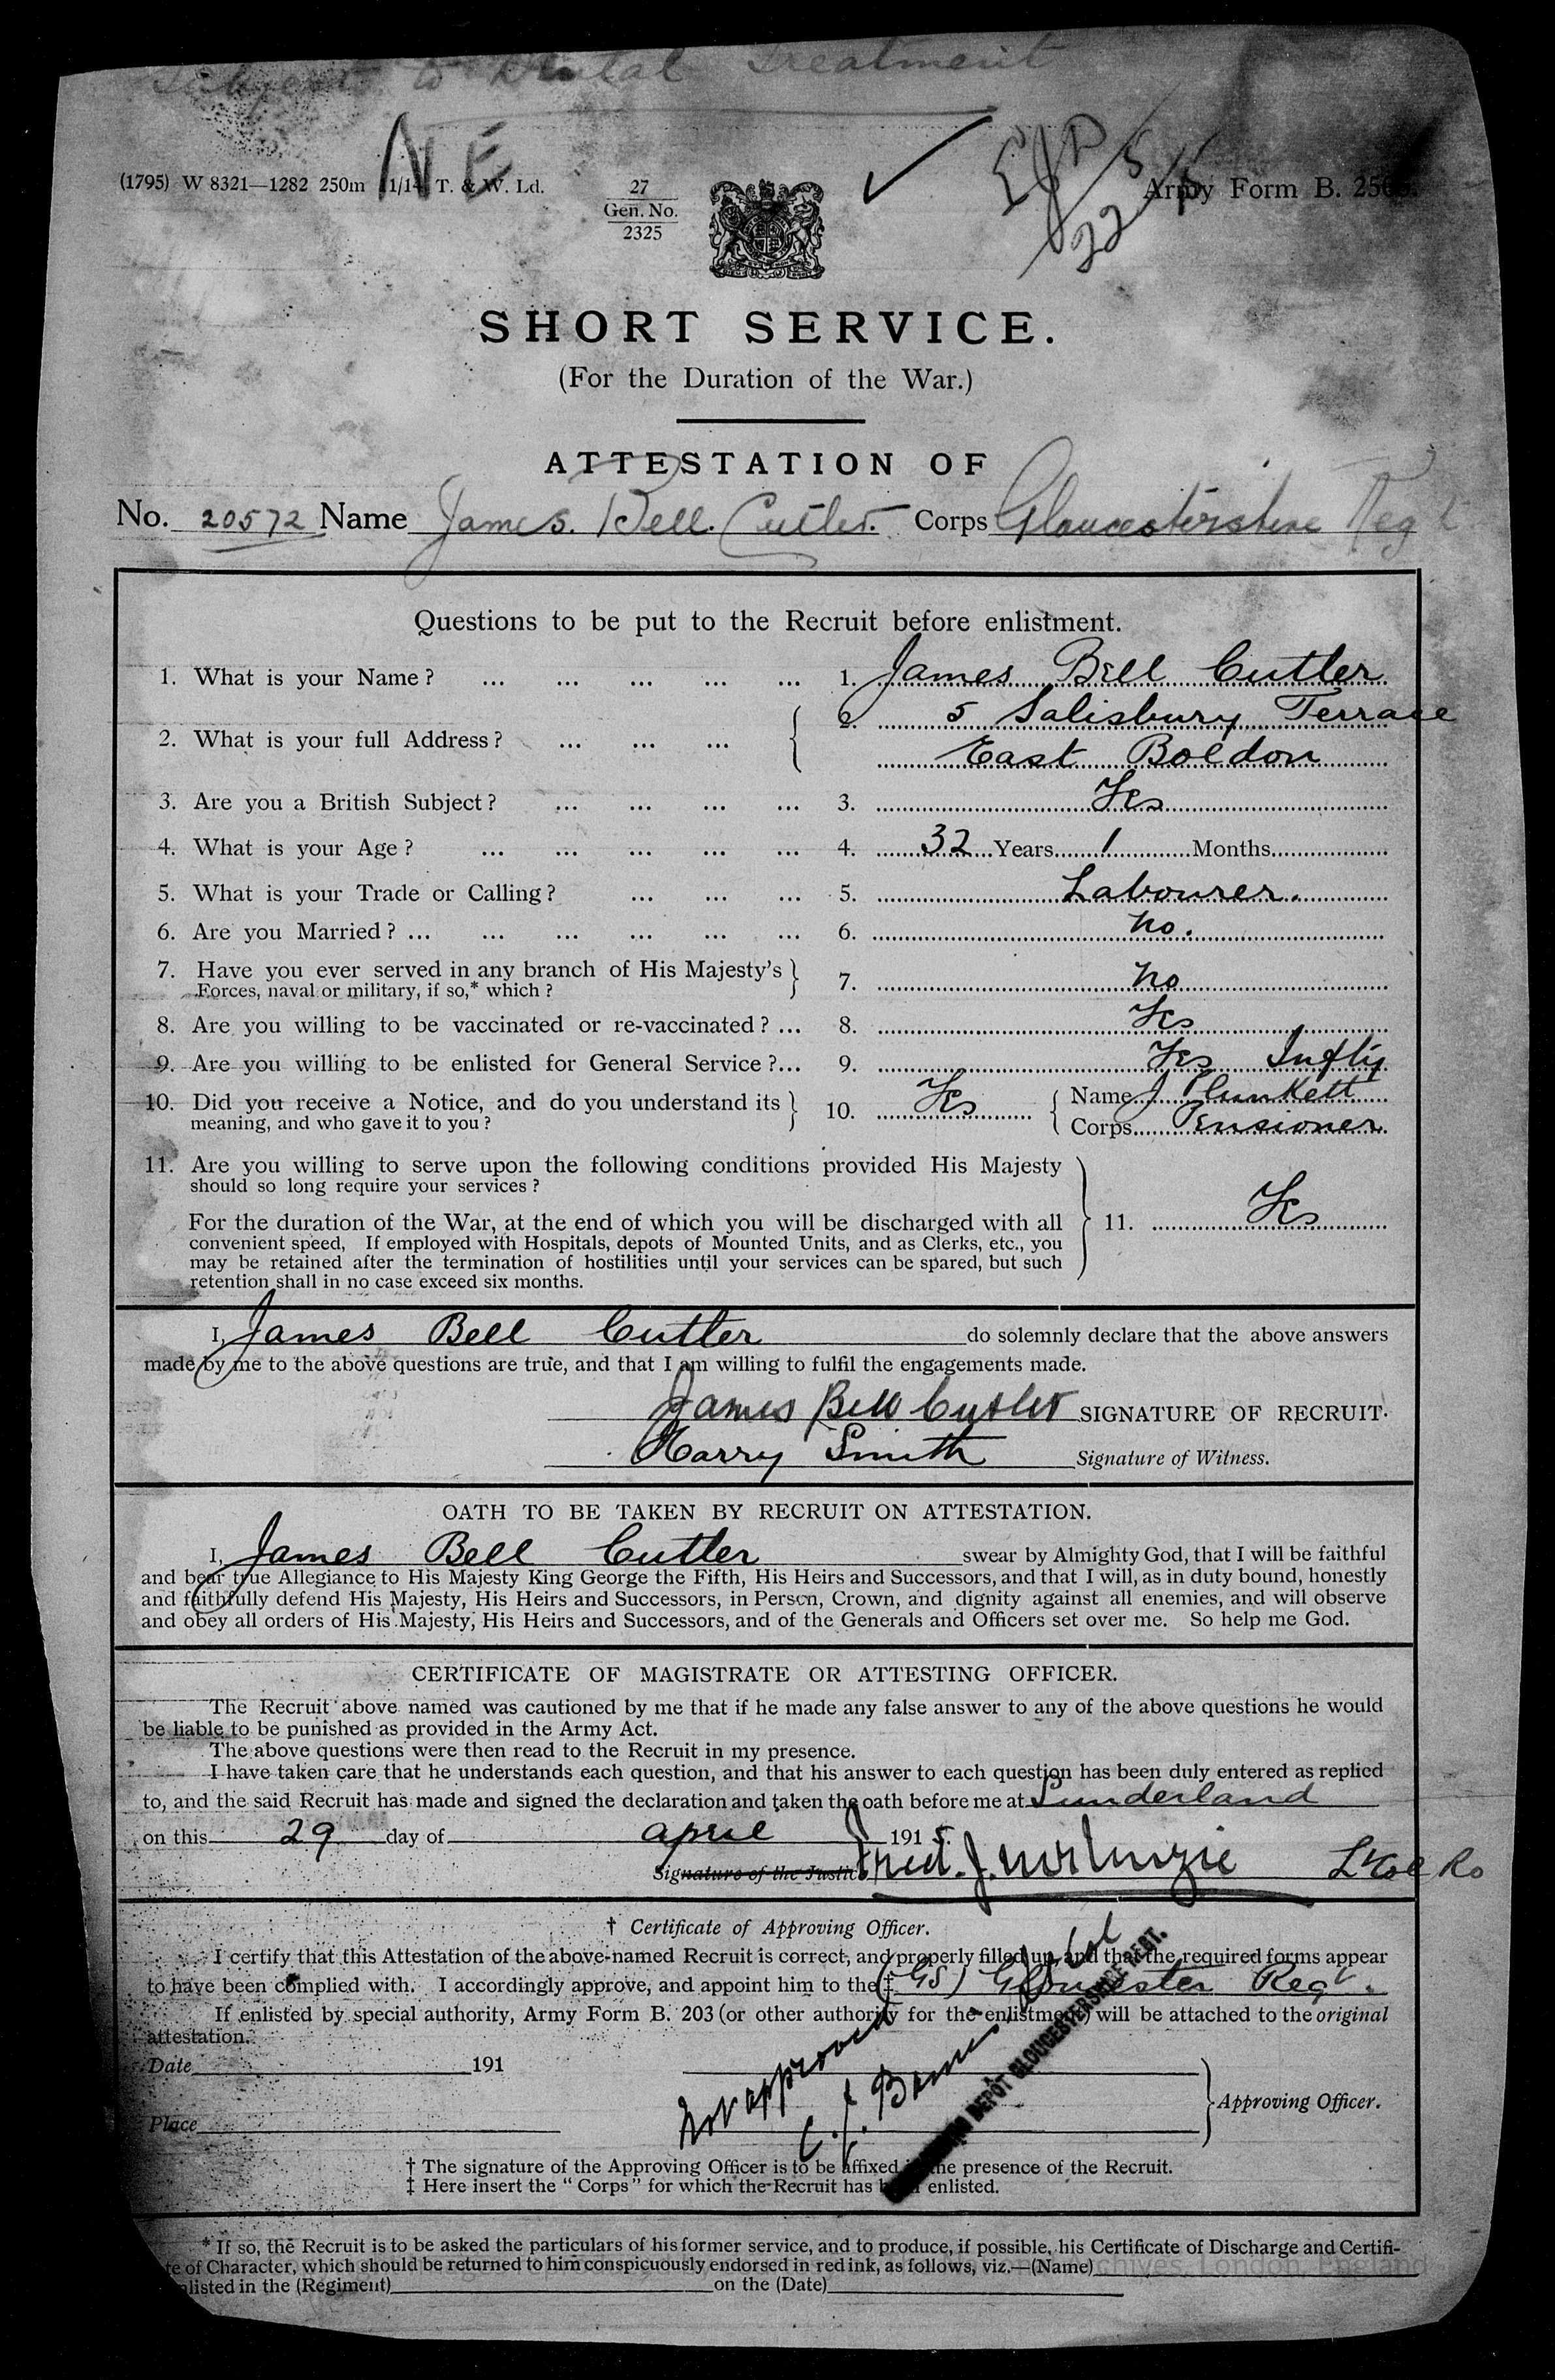 Subject to Dental Treatment
N E
(1795) W 8321—1282 250m 11/14 T. & W. Ld.
27
Gen. No.
2325
Army Form B. 250
22
SHORT SERVICE.
(For the Duration of the War.)
ATTESTATION OF
No. 20572 Name James. Bell. Cutler. Corps Gloucestershire Regt
Questions to be put to the Recruit before enlistment.
1. What is your Name? ... ... ... ... ... 1. James Bell Cutler
2. What is your full Address? ... ... ... 2. 5 Salisbury Terrace
East Boldon
3. Are you a British Subject? ... ... ... ... 3. Yes
4. What is your Age? ... ... ... ... ... 4. 32 Years 1 Months
5. What is your Trade or Calling? ... ... ... 5. Labourer.
6. Are you Married? ... ... ... ... ... ... 6. No.
7. Have you ever served in any branch of His Majesty's
Forces, naval or military, if so,* which? 7. No
8. Are you willing to be vaccinated or re-vaccinated? ... 8. Yes
9. Are you willing to be enlisted for General Service?... 9. Yes Inftry
10. Did you receive a Notice, and do you understand its
meaning, and who gave it to you? 10. Yes Name J Plunkett
Corps Pensioner
11. Are you willing to serve upon the following conditions provided His Majesty
should so long require your services?
For the duration of the War, at the end of which you will be discharged with all 11. Yes
convenient speed, If employed with Hospitals, depots of Mounted Units, and as Clerks, etc., you
may be retained after the termination of hostilities until your services can be spared, but such
retention shall in no case exceed six months.
I, James Bell Cutler do solemnly declare that the above answers
made by me to the above questions are true, and that I am willing to fulfil the engagements made.
James Bell Cutler SIGNATURE OF RECRUIT.
Harry Smith Signature of Witness.
OATH TO BE TAKEN BY RECRUIT ON ATTESTATION.
I, James Bell Cutler swear by Almighty God, that I will be faithful
and bear true Allegiance to His Majesty King George the Fifth, His Heirs and Successors, and that I will, as in duty bound, honestly
and faithfully defend His Majesty, His Heirs and Successors, in Person, Crown, and dignity against all enemies, and will observe
and obey all orders of His Majesty, His Heirs and Successors, and of the Generals and Officers set over me. So help me God.
CERTIFICATE OF MAGISTRATE OR ATTESTING OFFICER.
The Recruit above named was cautioned by me that if he made any false answer to any of the above questions he would
be liable to be punished as provided in the Army Act.
The above questions were then read to the Recruit in my presence.
I have taken care that he understands each question, and that his answer to each question has been duly entered as replied
to, and the said Recruit has made and signed the declaration and taken the oath before me at Sunderland
on this 29 day of April 1915.
Signature of the Justice Fred. J. McKenzie Lt Col Ro
† Certificate of Approving Officer.
I certify that this Attestation of the above-named Recruit is correct, and properly filled up, and that the required forms appear
to have been complied with. I accordingly approve, and appoint him to the ‡ (GS) Gloucester Regt.
If enlisted by special authority, Army Form B. 203 (or other authority for the enlistment) will be attached to the original
attestation.
Date 191
Place
Approving Officer.
Not approved
DEPÔT GLOUCESTERSHIRE REGT.
† The signature of the Approving Officer is to be affixed in the presence of the Recruit.
‡ Here insert the "Corps" for which the Recruit has been enlisted.
* If so, the Recruit is to be asked the particulars of his former service, and to produce, if possible, his Certificate of Discharge and Certifi-
te of Character, which should be returned to him conspicuously endorsed in red ink, as follows, viz.—(Name)
listed in the (Regiment) on the (Date)
chives, London, England